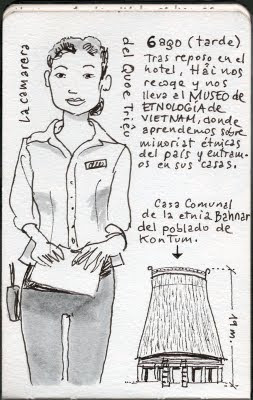 La camarera
del Quoc Triêu
6 ago (tarde)
Tras reposo en el
hotel, Hâi nos
recoge y nos
lleva al MUSEO DE
ETNOLOGÍA DE
VIETNAM, donde
aprendemos sobre
minorías étnicas
del país y entramos
en sus "casas".
Casa Comunal
de la etnia Bahnar
del poblado de
KonTum.
19 m.